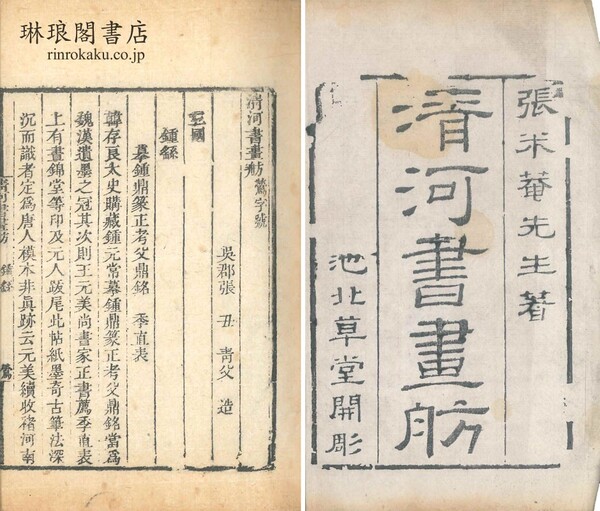 琳琅閣書店
rinrokaku.co.jp
張米菴先生著
清河書畫舫
池北草堂開彫
清河書畫舫 鶯字號
吳郡張丑青父造
三國
鍾繇
摹鍾鼎篆正考父鼎銘 季直表
韓存良太史購藏鍾元常摹鍾鼎篆正考父鼎銘當爲
魏漢遺墨之冠其次則王元美尚書家正書薦季直表
上有畫錦堂等印及元人跋尾此帖紙墨奇古筆法深
沉而識者定爲唐人模本非眞跡云元美續收褚河南
清河書畫舫 鍾繇 鶯